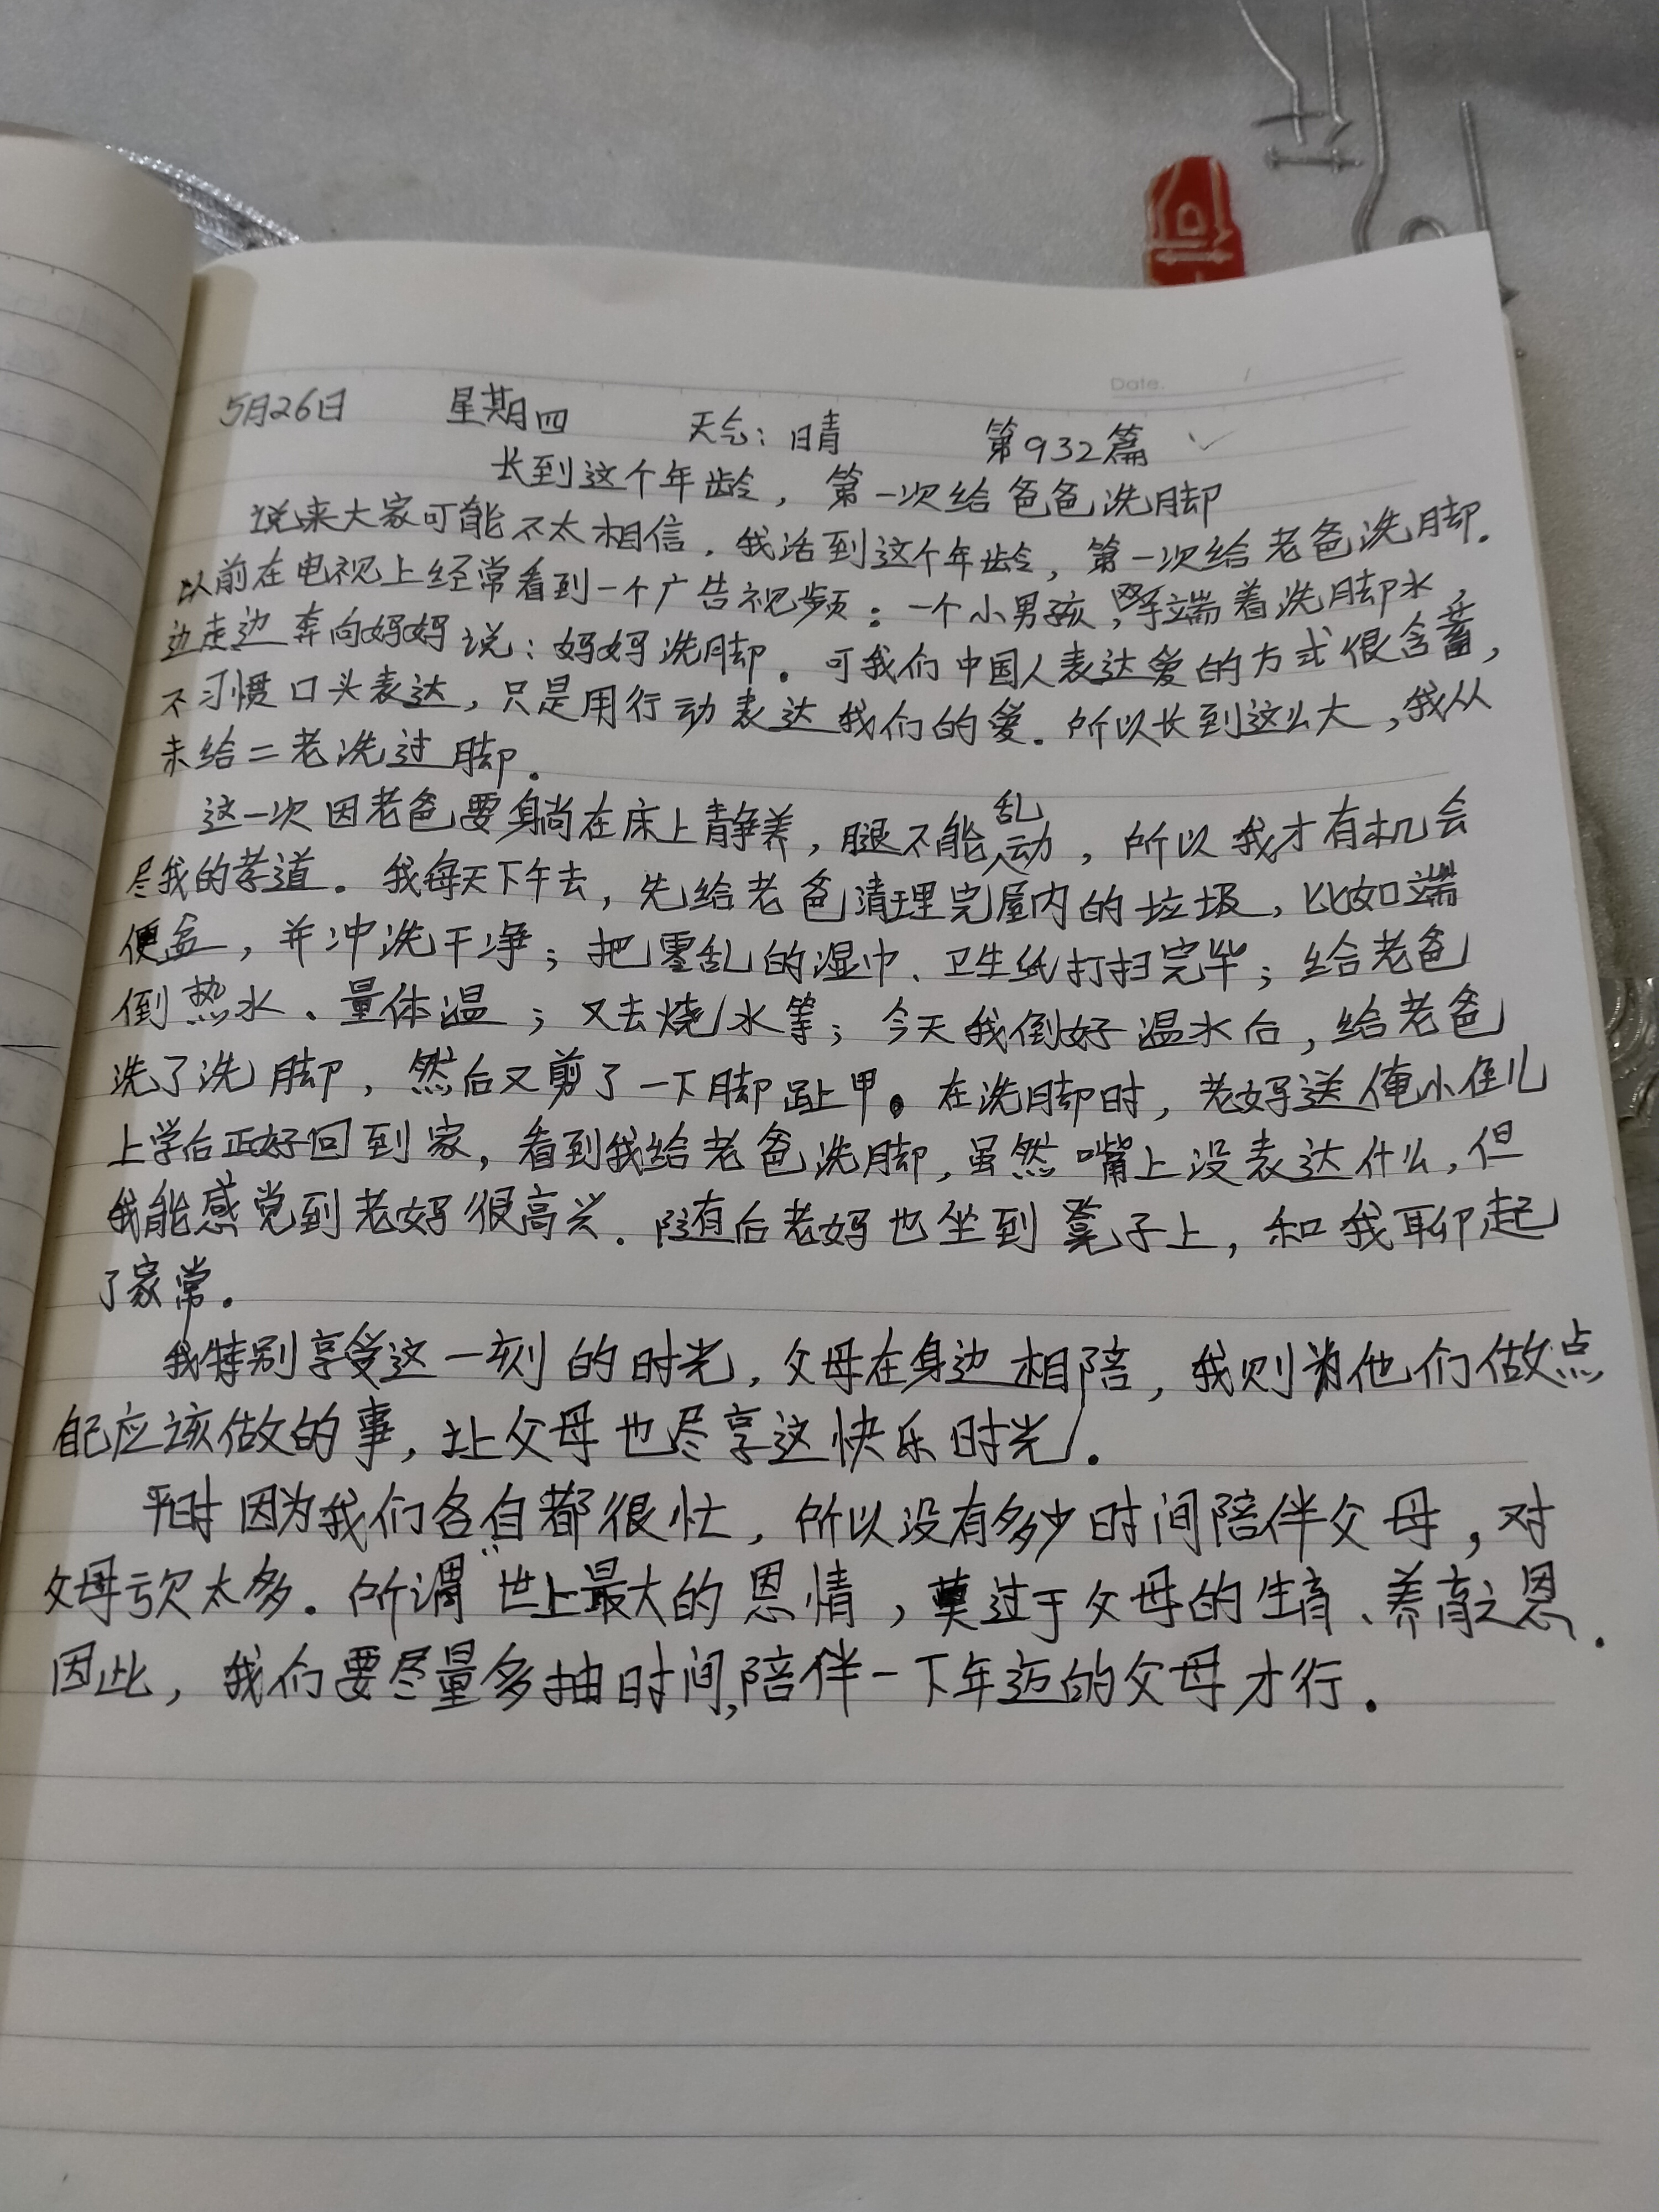 Date.
5月26日 星期四 天气：晴 第932篇
长到这个年龄，第一次给爸爸洗脚
说来大家可能不太相信．我活到这个年龄，第一次给老爸洗脚．
以前在电视上经常看到一个广告视频：一个小男孩，双手端着洗脚水，
边走边奔向妈妈说：妈妈洗脚．可我们中国人表达爱的方式很含蓄，
不习惯口头表达，只是用行动表达我们的爱．所以长到这么大，我从
未给二老洗过脚．
这一次因老爸要躺在床上静养，腿不能乱动，所以我才有机会
尽我的孝道．我每天下午去，先给老爸清理完屋内的垃圾，比如端
便盆，并冲洗干净；把零乱的湿巾、卫生纸打扫完毕；给老爸
倒热水、量体温；又去烧水等；今天我倒好温水后，给老爸
洗了洗脚，然后又剪了一下脚趾甲。在洗脚时，老妈送俺小侄儿
上学后正好回到家，看到我给老爸洗脚，虽然嘴上没表达什么，但
我能感觉到老妈很高兴．随后老妈也坐到凳子上，和我聊起
了家常．
我特别享受这一刻的时光，父母在身边相陪，我则为他们做点
自己应该做的事，让父母也尽享这快乐时光．
平时因为我们各自都很忙，所以没有多少时间陪伴父母，对
父母亏欠太多．所谓“世上最大的恩情，莫过于父母的生育、养育之恩．
因此，我们要尽量多抽时间，陪伴一下年迈的父母才行．